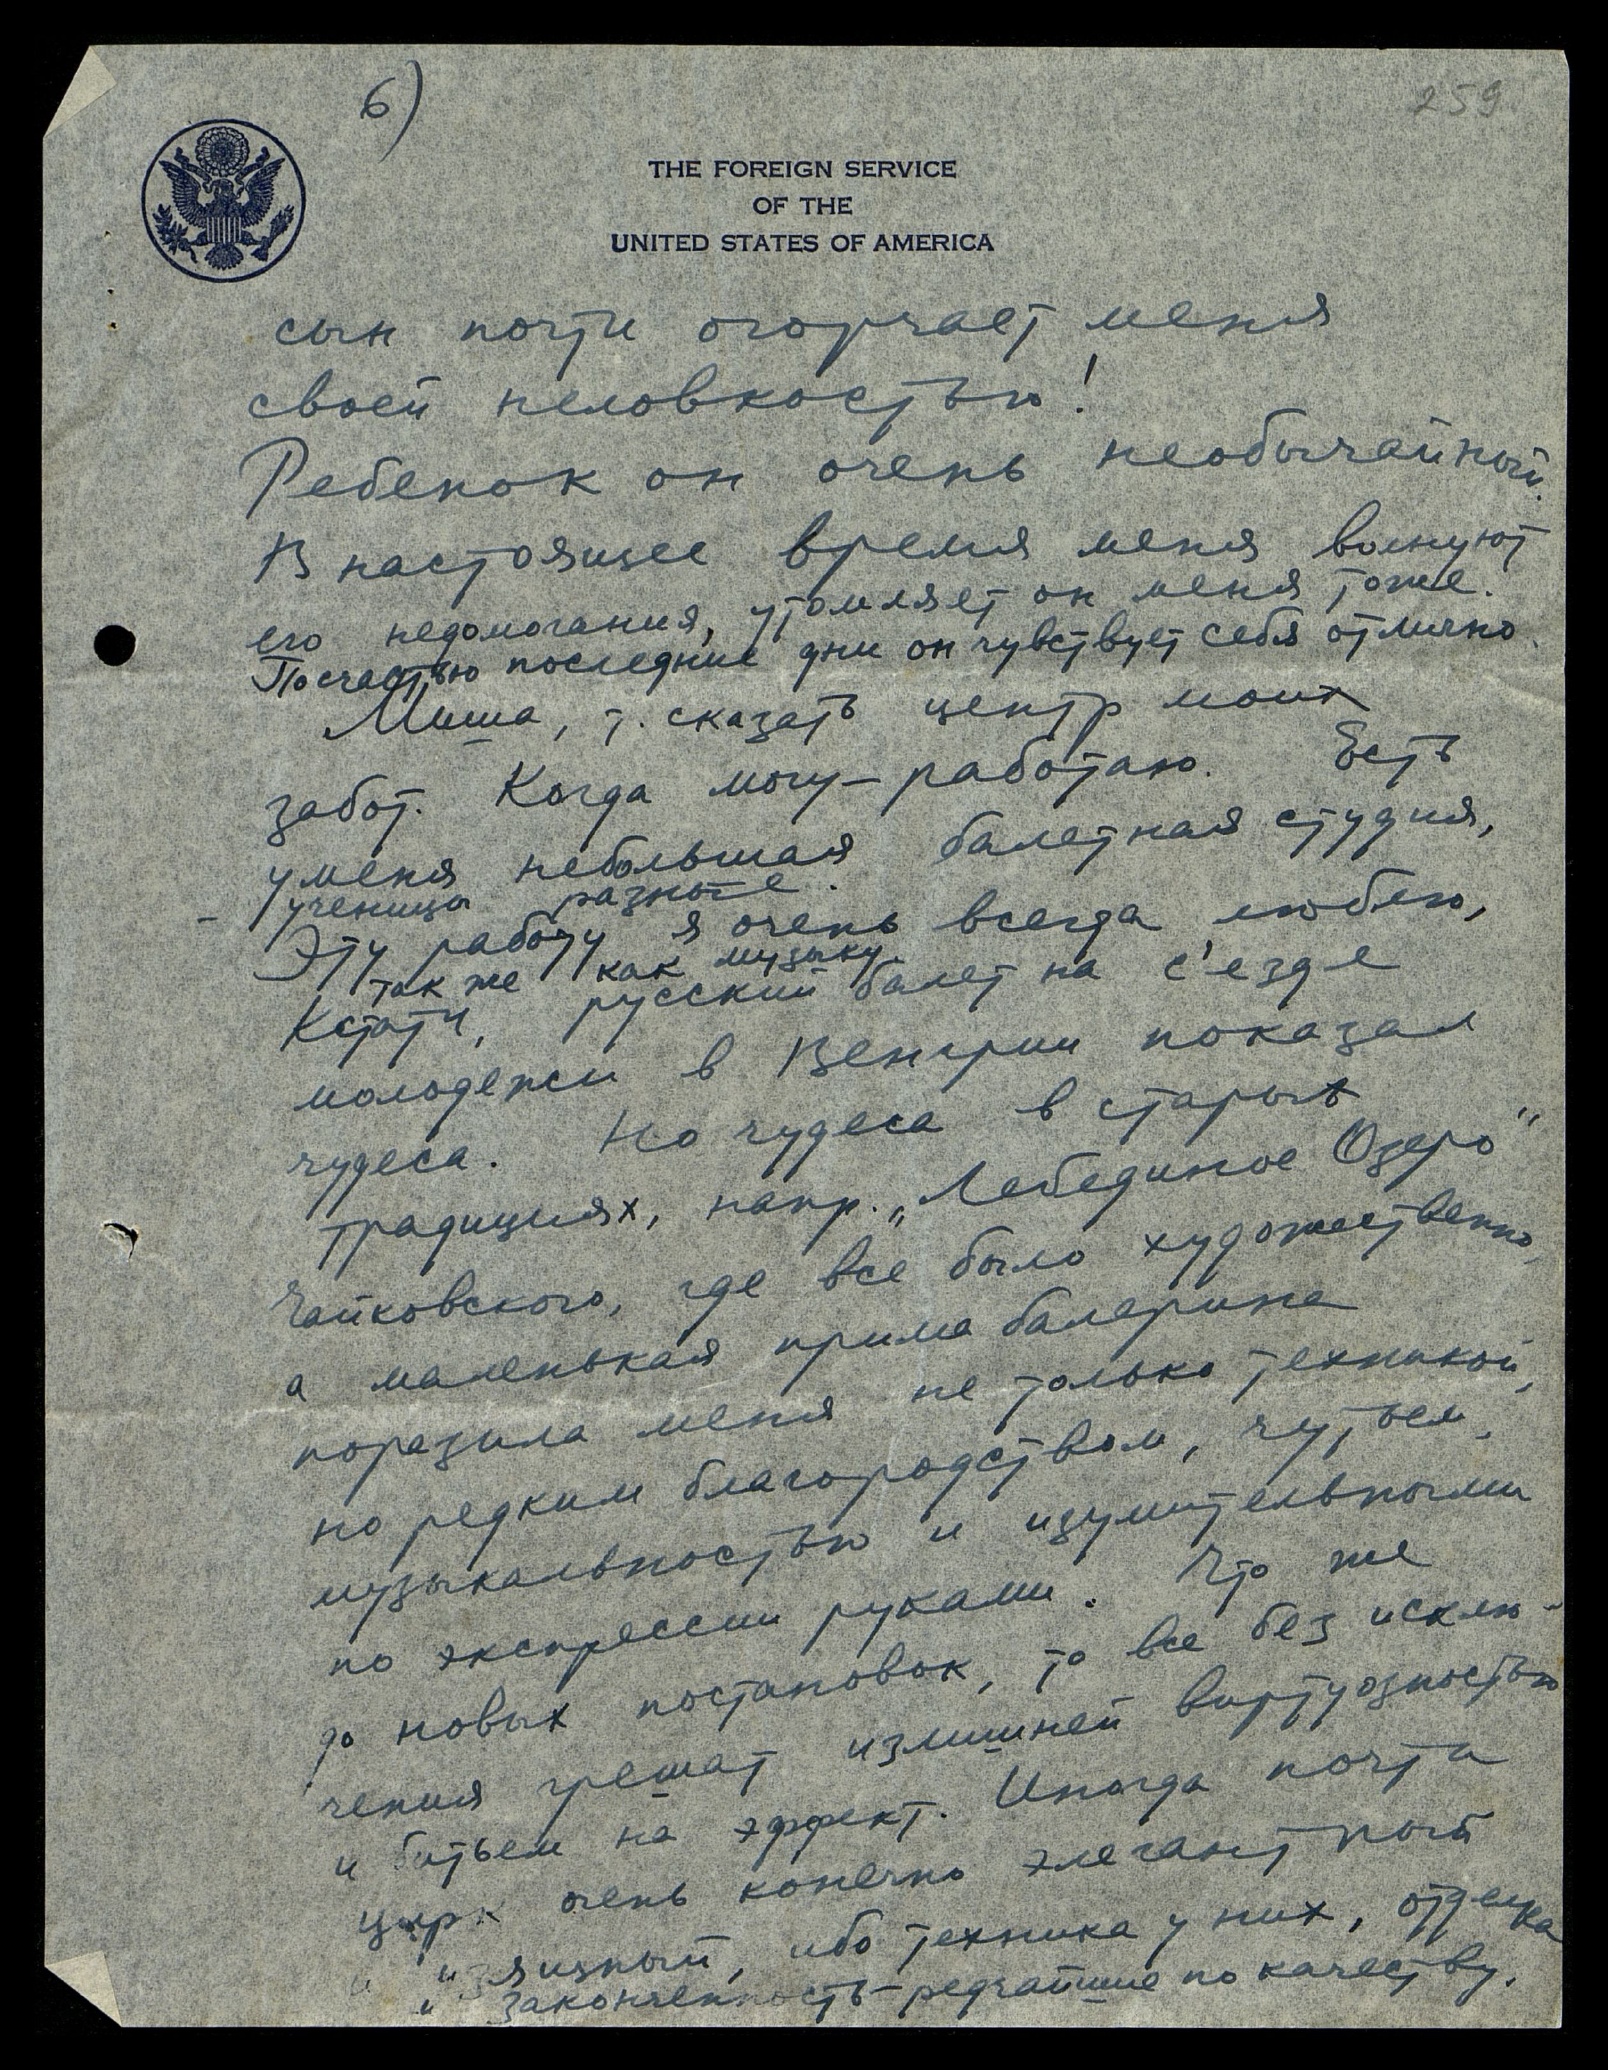 6)
259
THE FOREIGN SERVICE
OF THE
UNITED STATES OF AMERICA
сын почти огорчает меня
своей неловкостью!
Ребенок он очень необычайный.
В настоящее время меня волнуют
его недомогания, утомляет он меня тоже.
По счастью последние дни он чувствует себя отлично.
Миша, т. сказать центр моих
забот. Когда могу – работаю. Есть
у меня небольшая балетная студия,
– ученицы разные.
Эту работу я очень всегда люблю,
так же как музыку.
Кстати, русский балет на с'езде
молодежи в Венгрии показал
чудеса. Но чудеса в старых
традициях, напр. „Лебединое Озеро"
Чайковского, где все было художественно,
а маленькая прима балерина
поразила меня не только техникой,
но редким благородством, чутьем,
музыкальностью и изумительными
по экспрессии руками. Что же
до новых постановок, то все без исклю-
чения грешат излишней виртуозностью
и битьем на эффект. Иногда почти
цирк очень конечно элегантный
и изящный, ибо техника у них, отделка
и законченность – редчайшие по качеству.